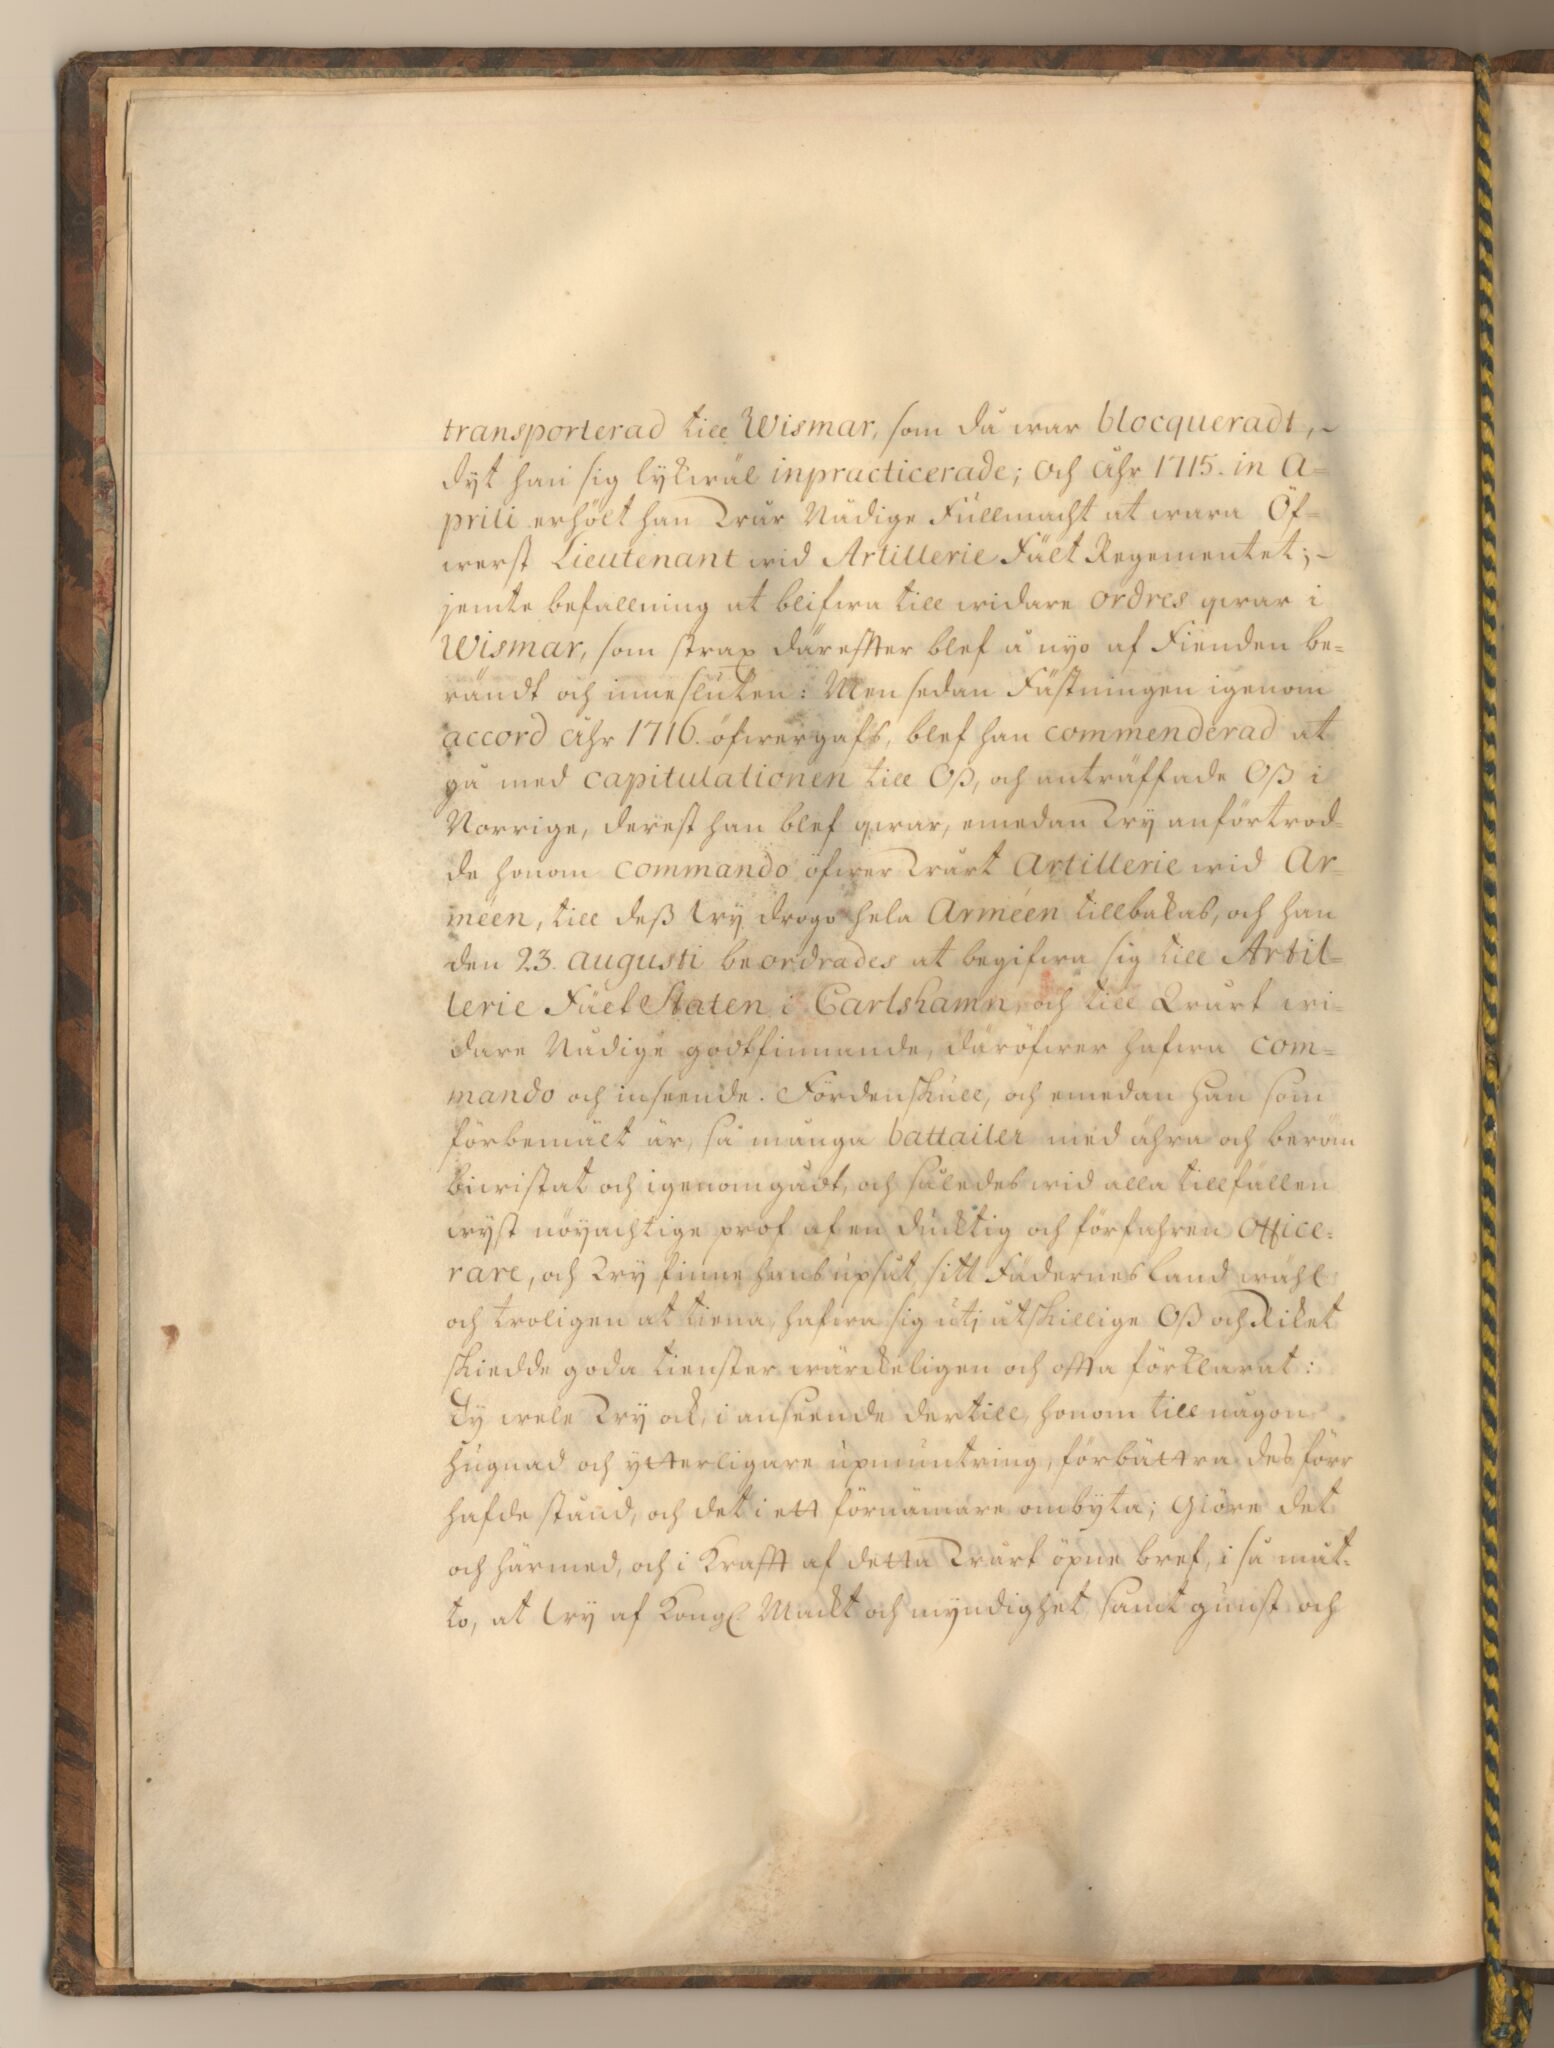 transporterad till Wismar, som då war blocqueradt,
dyt han sig lykwäl inpracticerade; och åhr 1715. in A=
prili erhölt han Wår Nådige Fullmacht at wara Öf=
werst Lieutenant wid Artillerie Fält Regementet;
jemte befallning at blifwa till widare ordres qwar i
Wismar, som strax därefter blef å nyo af Fienden be=
rändt och innesluten: Men sedan Fästningen igenom
accord åhr 1716. öfwergafs, blef han commenderad at
gå med capitulationen till Oß, och anträffade Oß i
Norrige, derest han blef qwar, emedan Wy anförtrod=
de honom commando öfwer Wårt Artillerie wid Ar=
méen, till deß Wy drogo hela Arméen tillbakas, och han
den 23. augusti beordrades at begifwa sig till Artil=
lerie Fält Staten i Carlshamn, och till Wårt wi=
dare Nådige godtfinnande, däröfwer hafwa com=
mando och inseende. Fördenskull, och emedan han som
förbemält är, så många battailer med ähra och beröm
biwistat och igenomgådt, och således wid alla tillfällen
wyst nöyachtige prof af en ducktig och förfahren Office=
rare, och Wy finne hans upsåt, sitt Fädernesland wähl
och troligen at tiena, hafwa sig uti åtskillige Oß och Riket
skiedde goda tienster wärckeligen och offta förklarat:
Ty wele Wy ock, i anseende dertill, honom till någon
hugnad och ytterligare upmuntring, förbättra des förr
hafde stånd, och det i ett förnämare ombyta; Giöre det
och härmed, och i Krafft af detta Wårt öpne bref, i så måt=
to, at Wy af Kongl Mackt och myndighet, samt gunst och